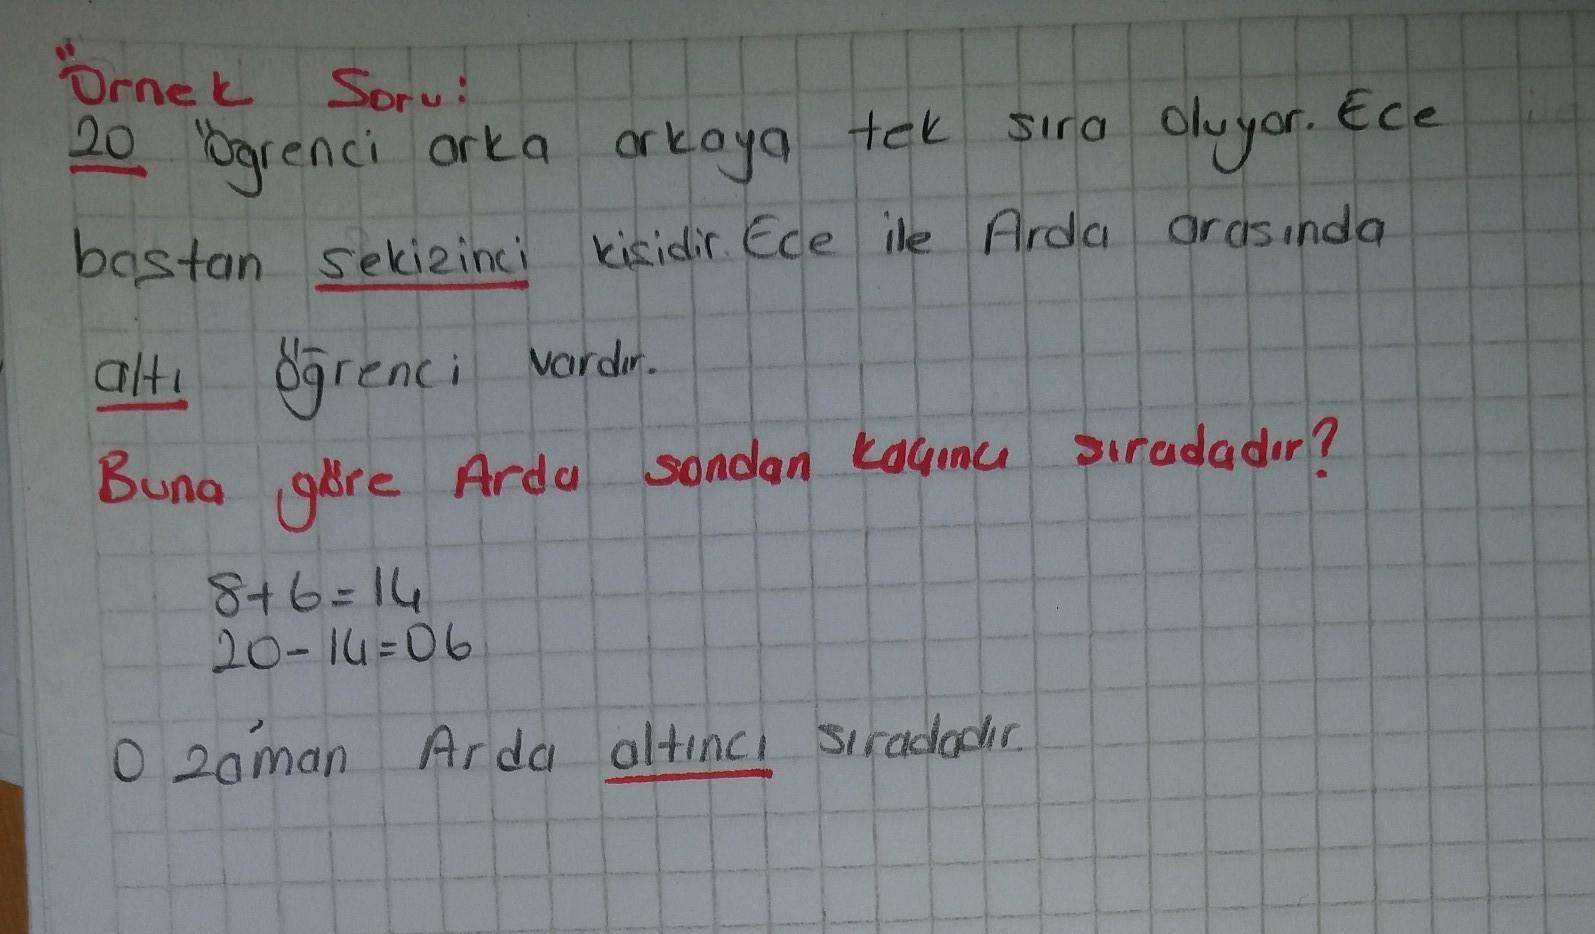 Örnek Soru:
20 öğrenci arka arkaya tek sıra oluyor. Ece
baştan sekizinci kişidir. Ece ile Arda arasında
altı öğrenci vardır.
Buna göre Arda sondan kaçıncı sıradadır?
8+6=14
20-14=06
O zaman Arda altıncı sıradadır.